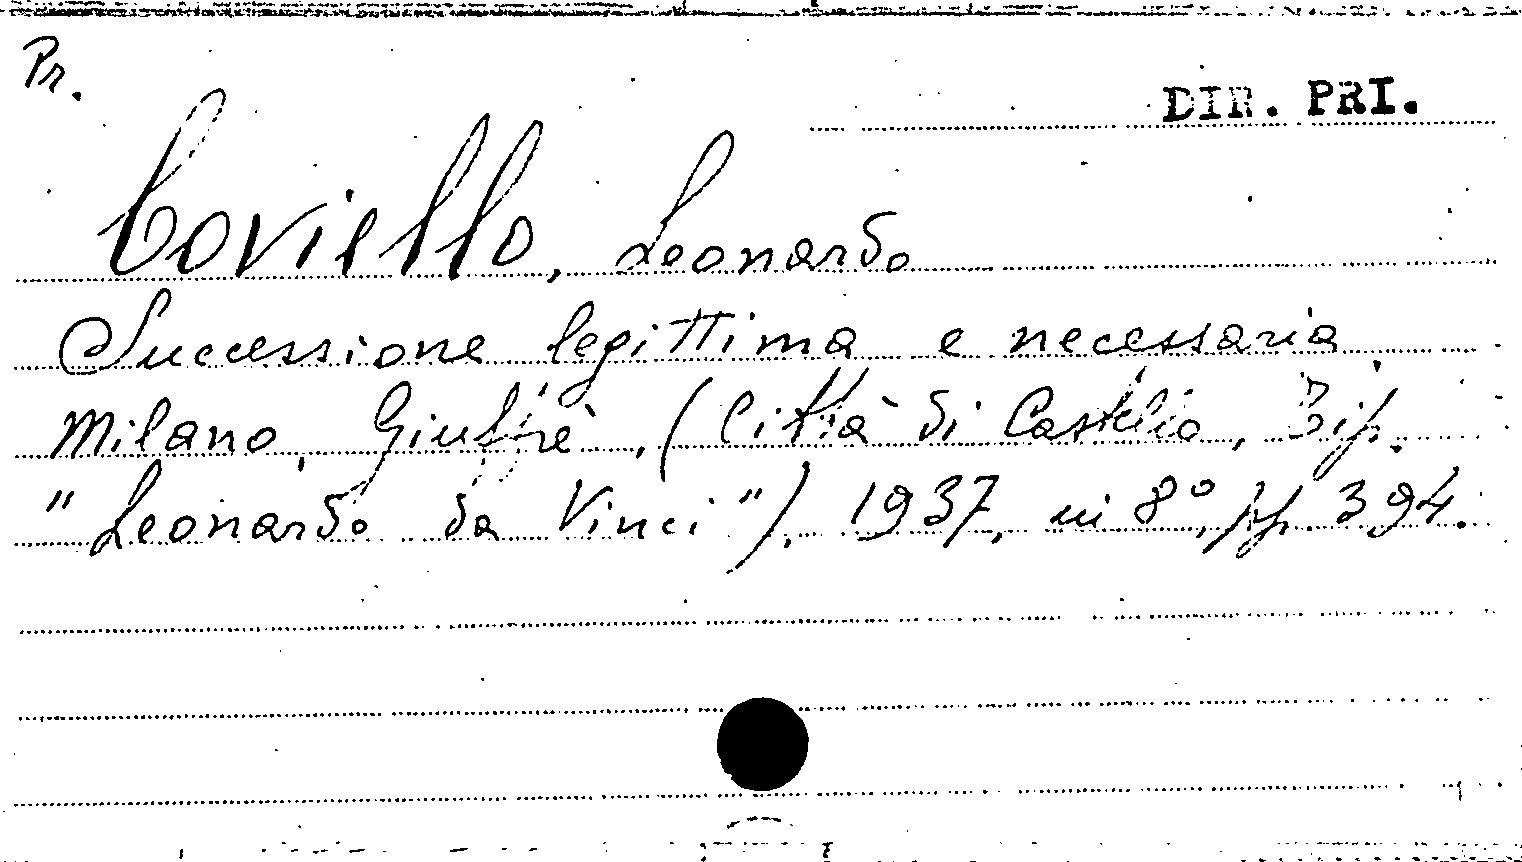 Pr.
DIR. PRI.
Coviello, Leonardo
Successione legittima e necessaria.
Milano, Giuffrè, (Città di Castello, Tip.
"Leonardo da Vinci"), 1937, in 8°, pp. 394.